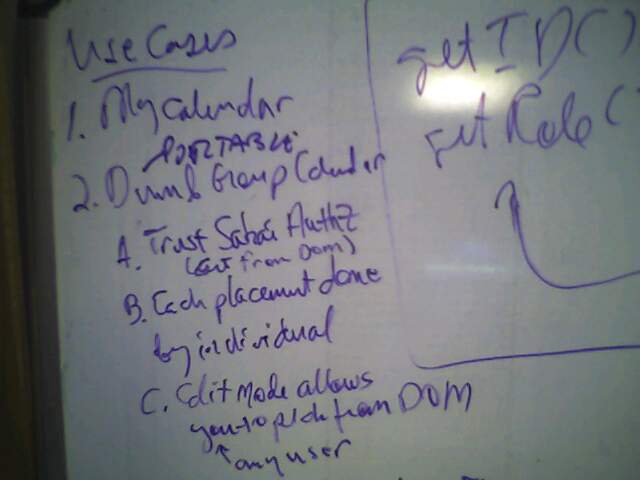 Use Cases
1. My Calendar
PORTABLE
2. Dumb Group Calendar
A. Trust Sakai AuthZ
(Get from DOM)
B. Each placement done
by individual
C. Edit Mode allows
you to pick from DOM
any user
getID()
getRole(